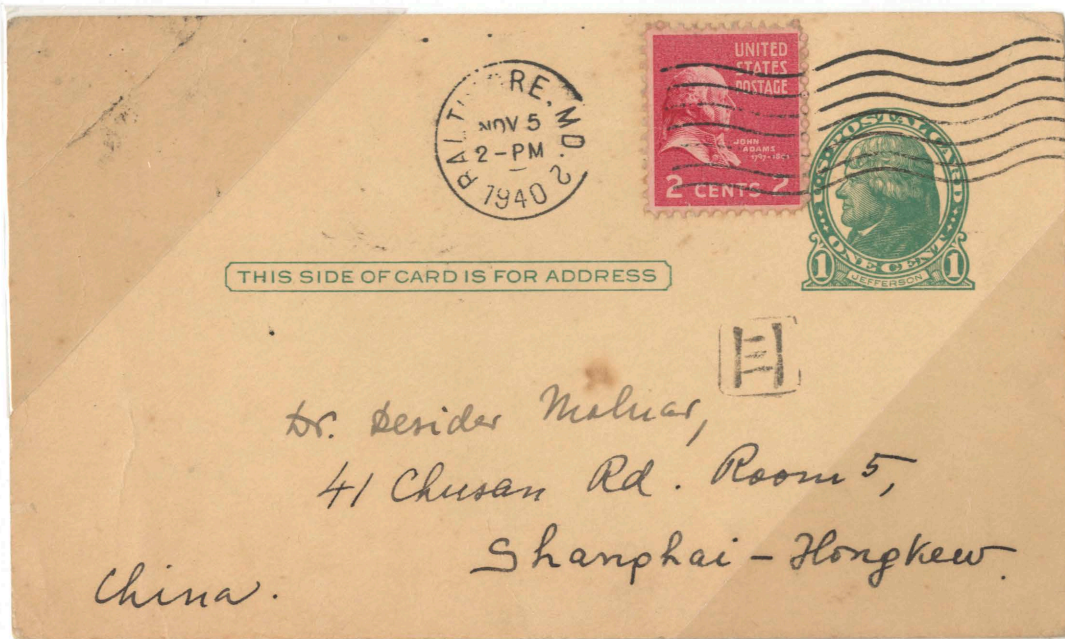 BALTIMORE, MD. 2
NOV 5
2-PM
1940
UNITED
STATES
POSTAGE
JOHN
ADAMS
2 CENTS 2
U.S. POSTAL CARD
ONE CENT
1 JEFFERSON 1
THIS SIDE OF CARD IS FOR ADDRESS
Dr. Desider Molnar,
41 Chusan Rd. Room 5,
Shanghai - Hongkew.
China.